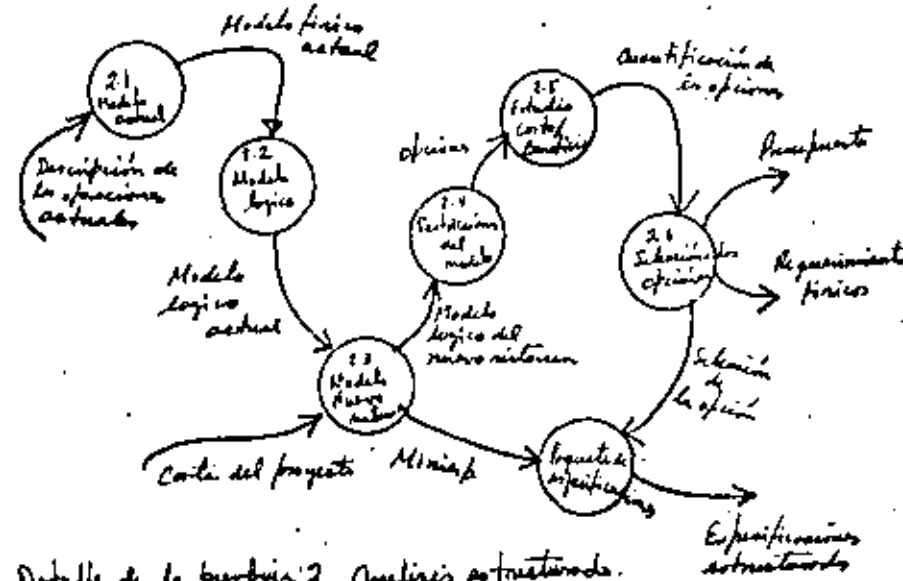 Modelo físico
actual
2.1
Modelo
actual
Descripción de
las operaciones
actuales
2.2
Modelo
logico
Modelo
logico
actual
2.3
Modelo
Nuevo
Carta del proyecto
Modelo
logico del
nuevo sistema
2.4
del
modelo
opciones
2.5
Estudio
costo/
beneficio
Cuantificación de
las opciones
2.6
Selección
opciones
Presupuesto
Requerimientos
físicos
Selección
de
la opción
Minisp
Paquete de
especificaciones
Especificaciones
estructuradas
Detalle de la burbuja 2 Analisis estructurado.